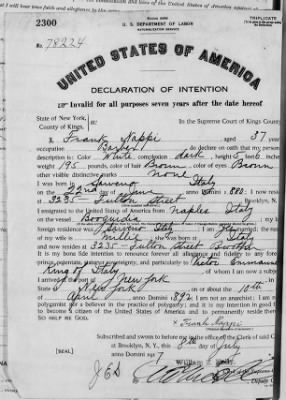 TRIPLICATE
2300
U. S. DEPARTMENT OF LABOR
NATURALIZATION SERVICE
No. 78224
UNITED STATES OF AMERICA
DECLARATION OF INTENTION
Invalid for all purposes seven years after the date hereof
State of New York,
County of Kings, ss:
In the Supreme Court of Kings County.
I, Frank Nappi aged 37 years,
occupation Barber, do declare on oath that my personal
description is: Color White, complexion dark, height 5 feet 6 inches,
weight 195 pounds, color of hair Brown, color of eyes Brown
other visible distinctive marks none
I was born in Italy
on the 22nd day of June, anno Domini 1880; I now reside
at 3235 Fulton Street Brooklyn, N.Y.
I emigrated to the United States of America from Naples Italy
on the vessel; my last
foreign residence was Italy; I am married; the name
of my wife is Millie; she was born at Italy
and now resides at 3235 Fulton Street Brooklyn
It is my bona fide intention to renounce forever all allegiance and fidelity to any foreign
prince, potentate, state, or sovereignty, and particularly to Victor Emmanuel
King of Italy, of whom I am now a subject;
I arrived at the port of New York
State of New York, on or about the 10th day
of April, anno Domini 1892; I am not an anarchist; I am not a
polygamist nor a believer in the practice of polygamy; and it is my intention in good faith
to become a citizen of the United States of America and to permanently reside therein:
SO HELP ME GOD.
x Frank Nappi
Subscribed and sworn to before me in the office of the Clerk of said Court
at Brooklyn, N. Y., this 8th day of July
anno Domini 1917
[SEAL]
William E. Kelly